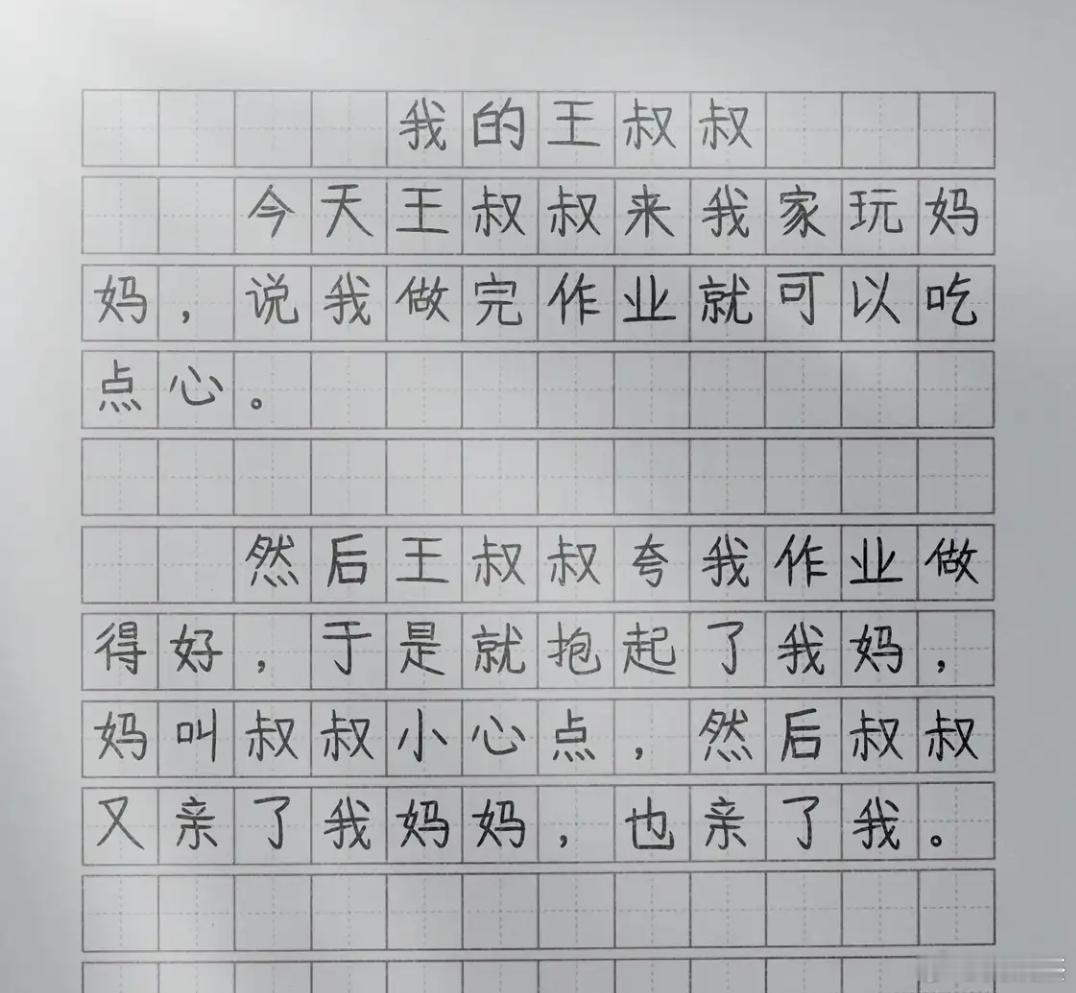 我的王叔叔
今天王叔叔来我家玩妈
妈，说我做完作业就可以吃
点心。
然后王叔叔夸我作业做
得好，于是就抱起了我妈，
妈叫叔叔小心点，然后叔叔
又亲了我妈妈，也亲了我。